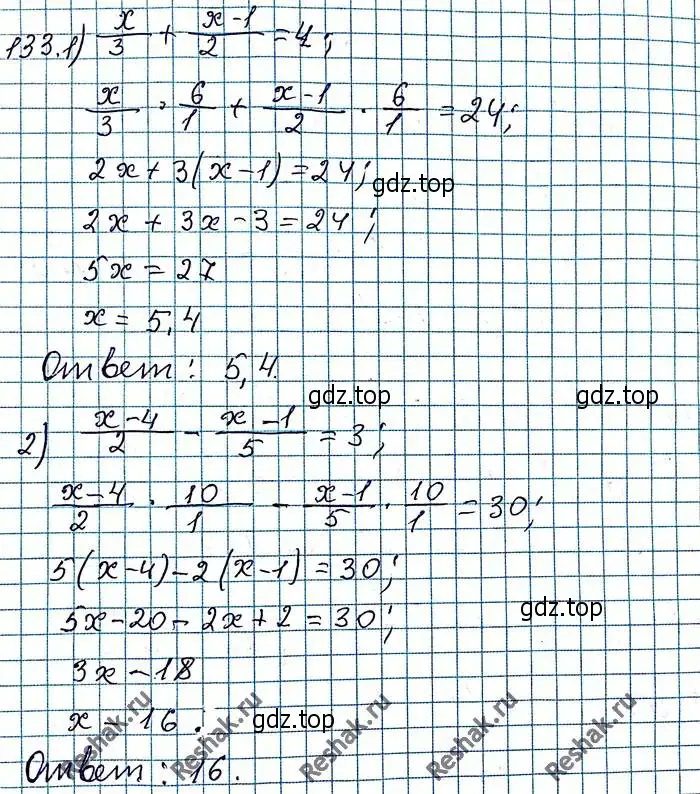 133.1) x/3 + (x-1)/2 = 4;
x/3 · 6/1 + (x-1)/2 · 6/1 = 24;
2x + 3(x-1) = 24;
gdz.top
2x + 3x - 3 = 24;
5x = 27
x = 5,4
Ответ: 5,4.
gdz.top gdz.top
2) (x-4)/2 - (x-1)/5 = 3;
(x-4)/2 · 10/1 - (x-1)/5 · 10/1 = 30;
5(x-4) - 2(x-1) = 30;
gdz.top
5x - 20 - 2x + 2 = 30;
3x - 18
x = 16.
gdz.top
Reshak.ru Reshak.ru Reshak.ru Reshak.ru Reshak.ru
Ответ: 16.